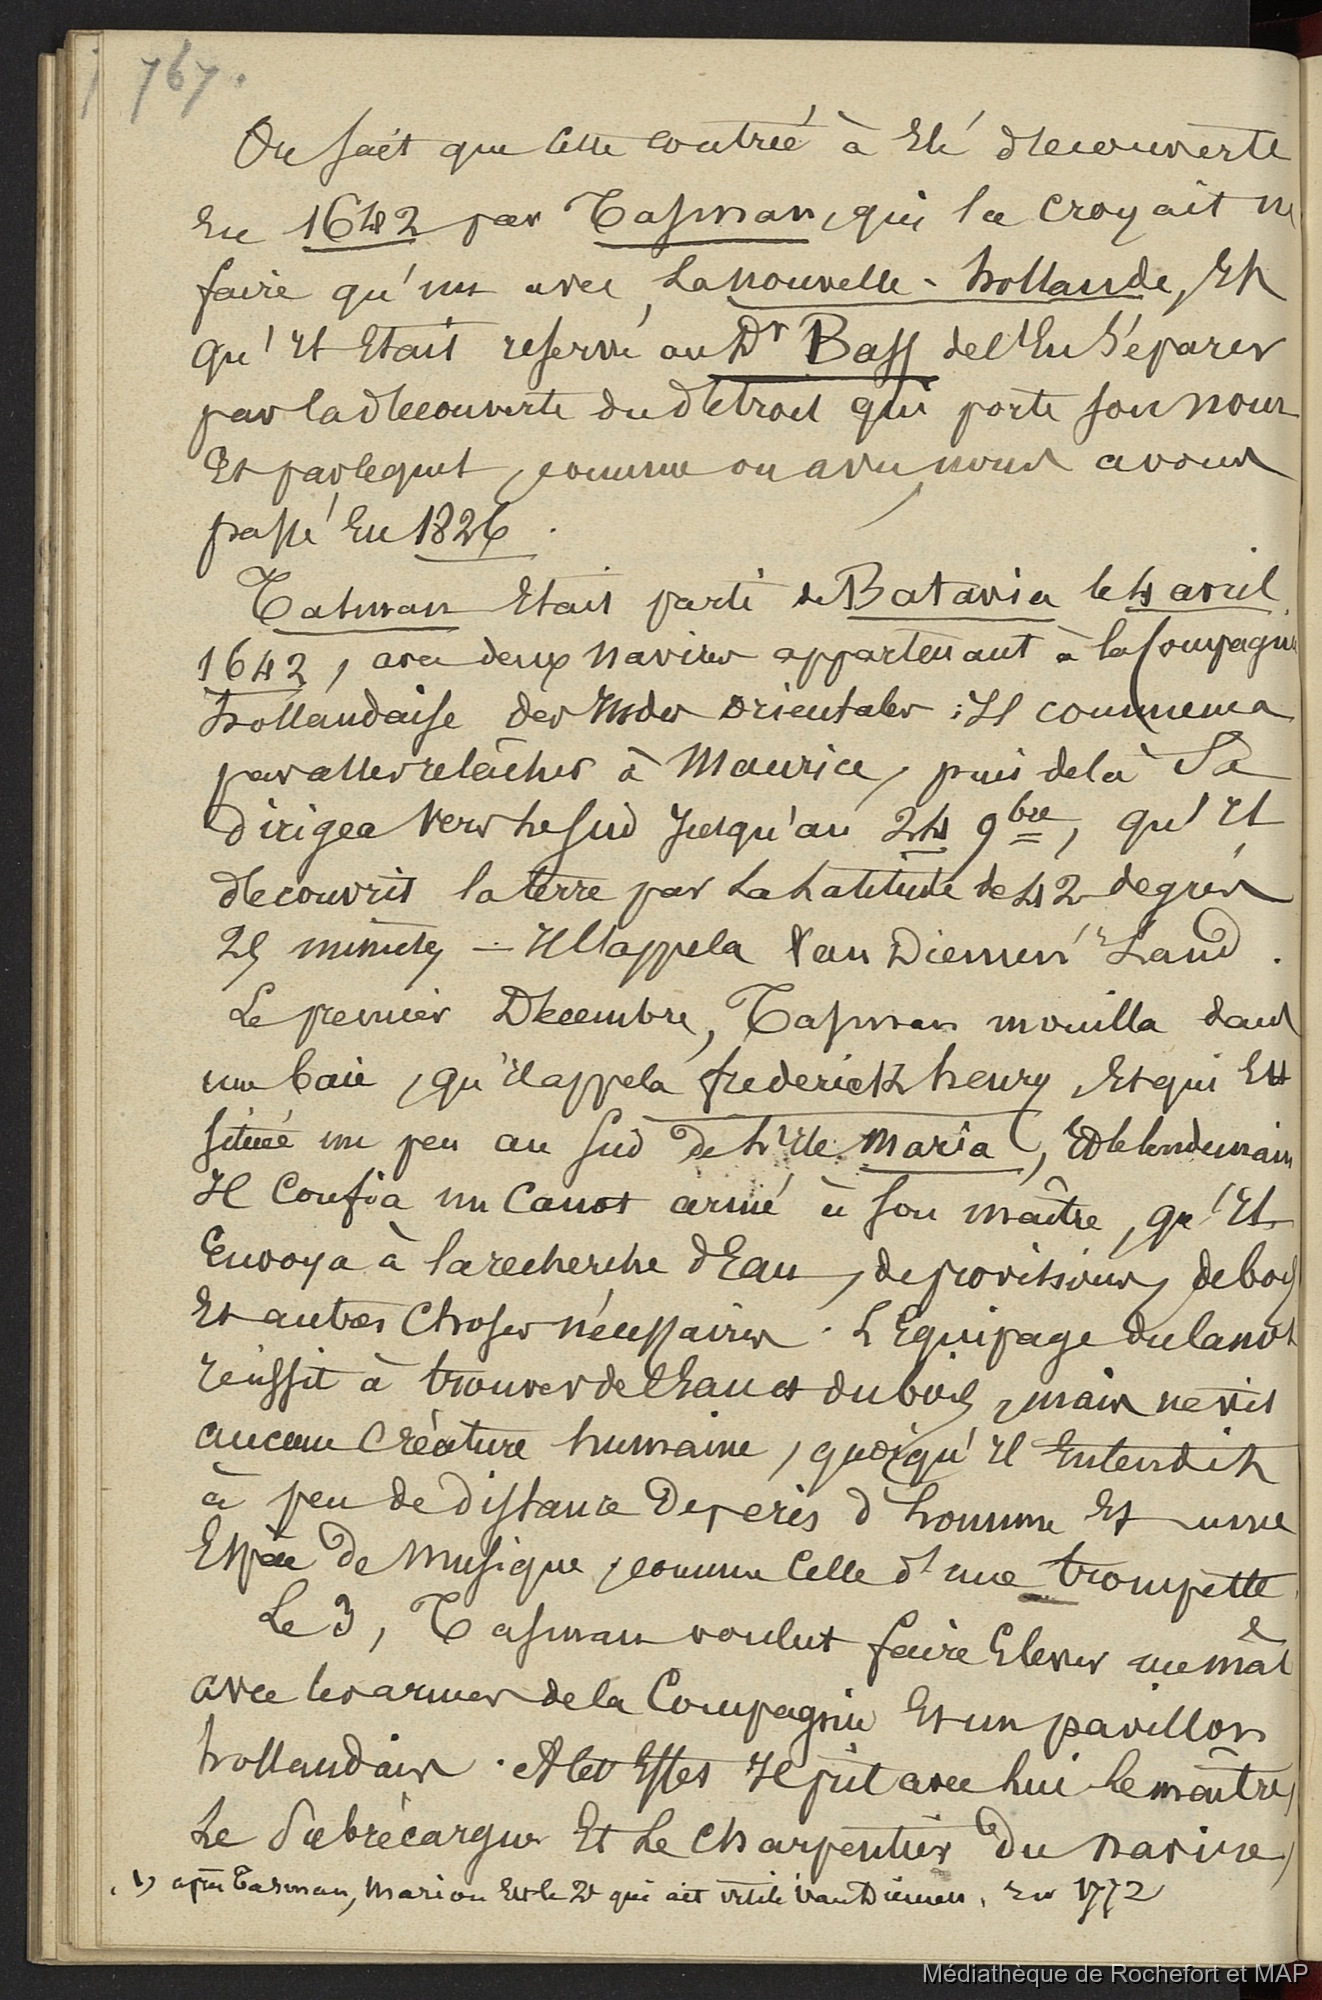 767.
On sait que cette contrée à Eté découverte
En 1642 par Tasman, qui la croyait ne
faire qu'un avec La nouvelle-hollande, Et
qu'Il Etait reservé au Dr Bass de l'En Séparer
par la découverte du détroit qui porte son nom
Et par lequel, comme on a vu, nous avons
passé En 1826.
Tasman Etait parti de Batavia le 4 avril
1642, avec deux navires appartenant à la Compagnie
hollandaise des Indes orientales : Il commença
par aller relâcher à Maurice, puis delà Se
dirigea vers le Sud Jusqu'au 24 9bre, qu'Il
découvrit la terre par La Latitude de 42 degrés
25 minutes - Il l'appela Van Diemen's Land.
Le premier Décembre, Tasman mouilla dans
une baie, qu'Il appela frederick henry, Et qui Est
située un peu au Sud de L'Ile Maria, Et le lendemain
Il Confia un Canot armé à son maître, qu'Il
Envoya à la recherche d'Eau, de provisions, de bois
Et autres Choses nécessaires. L'Equipage du Canot
réussit à trouver de l'Eau et du bois, mais ne vit
aucune Créature humaine, quoiqu'Il Entendit
à peu de distance des cris d'homme Et une
Espèce de Musique, comme Celle d'une trompette
Le 3, Tasman voulut faire Elever un mât
avec les armes de la Compagnie Et un pavillon
hollandais. A cet Effet Il prit avec lui le maître,
Le Subrécargue Et Le Charpentier du navire,
(1) après Tasman, Marion Est le 2d qui ait visité Van Diemen, En 1772
Médiathèque de Rochefort et MAP